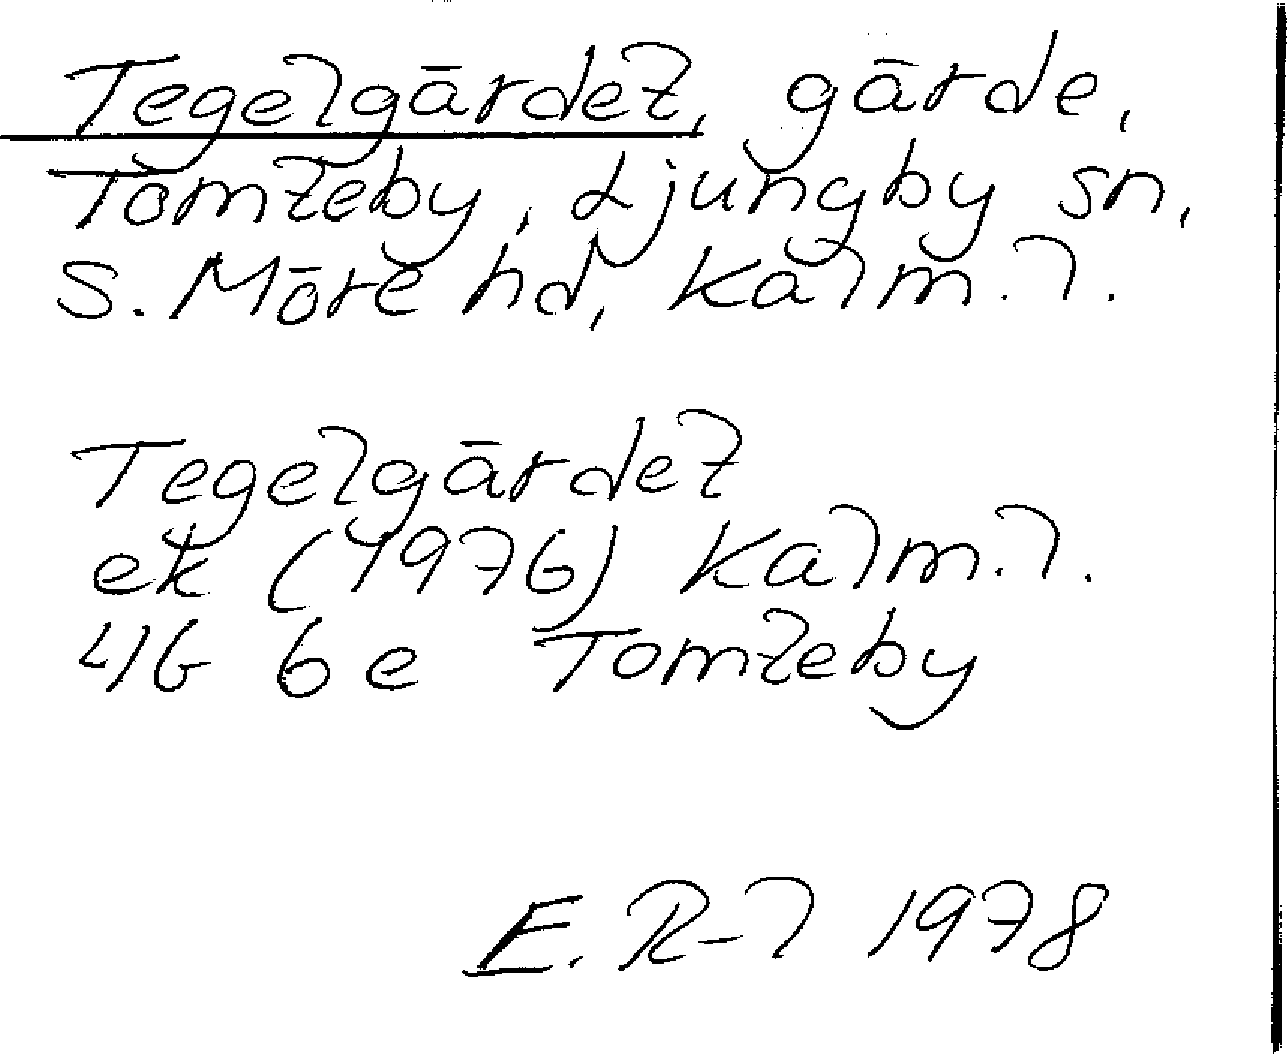 Tegelgärdet, gärde,
Tomteby, Ljungby sn,
S. Möre hd, Kalm. l.
Tegelgärdet
ek (1976) Kalm. l.
4G 6e Tomteby
E. R-l 1978